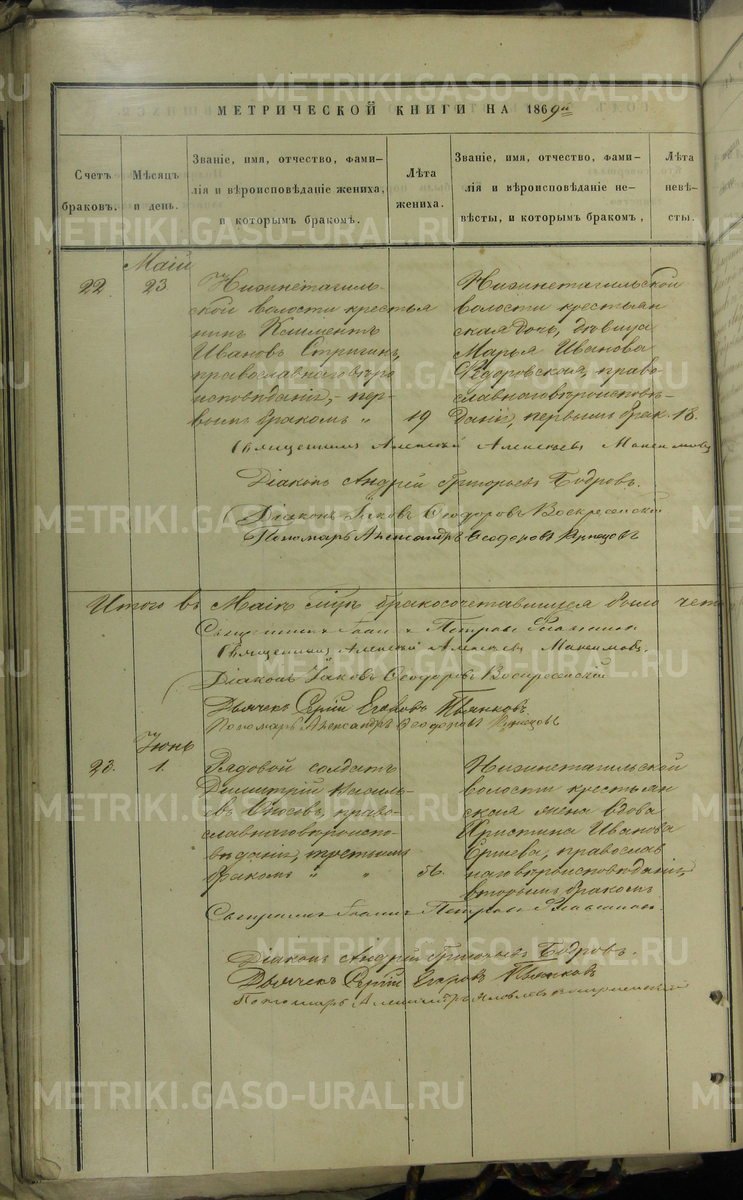 МЕТРИЧЕСКОЙ КНИГИ НА 1869й
Счетъ браковъ.
Мѣсяцъ и день.
Званіе, имя, отчество, фами-
лія и вѣроисповѣданіе жениха,
и которымъ бракомъ.
Лѣта
жениха.
Званіе, имя, отчество, фами-
лія и вѣроисповѣданіе не-
вѣсты, и которымъ бракомъ,
Лѣта
невѣ-
сты.
Маій
22
23
Нижнетагиль-
ской волости крестья
нинъ Климентъ
Ивановъ Стригинъ,
православнаго вѣро
исповѣданія, пер-
вымъ бракомъ "
19
Нижнетагильской
волости крестьян
ская дочь, дѣвица
Марья Иванова
Ѳедоровская, право-
славнаго вѣроисповѣ-
данія, первымъ брак.
18.
Священникъ Алексѣй Алексѣевъ Максимовъ
Діаконъ Андрей Григорьевъ Бодровъ.
Діаконъ Іаковъ Ѳеодоровъ Воскресенскій
Пономарь Александръ Ѳеодоровъ
Итого въ Маіѣ мцѣ бракосочетавшихся было четы
Священникъ Іоаннъ Петровъ
Священникъ Алексѣй Алексѣевъ Максимовъ.
Діаконъ Іаковъ Ѳеодоровъ Воскресенскій
Дьячекъ Сергій Егоровъ Пьянковъ
Пономарь Александръ Ѳеодоровъ
Іюнь
23.
1.
Рядовой солдатъ
Димитрій Василь-
евъ Носовъ, право-
славнаго вѣроиспо-
вѣданія, третьимъ
бракомъ " "
Нижнетагильской
волости крестьян
ская жена вдова
Христина Иванова
Ершева, православ
наго вѣроисповѣданія,
вторымъ бракомъ
Священникъ Іоаннъ Петровъ
Діаконъ Андрей Григорьевъ Бодровъ.
Дьячекъ Сергій Егоровъ Пьянковъ
Пономарь Александръ Яковлевъ Воскресенскій
METRIKI.GASO-URAL.RU